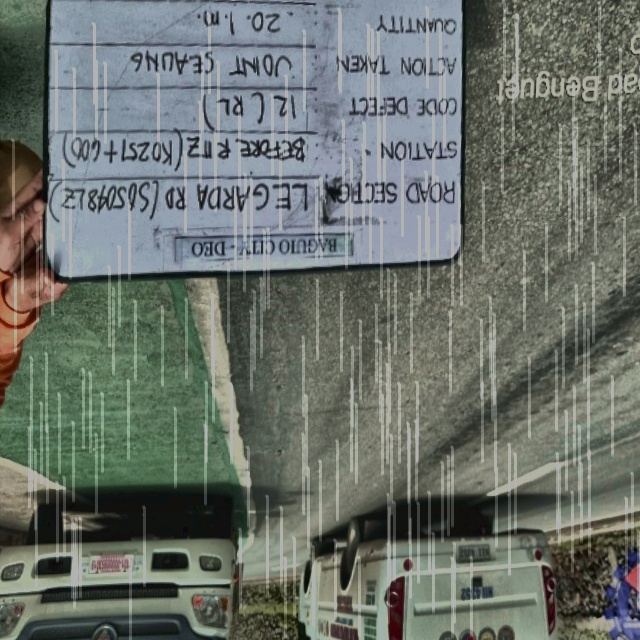 BAGUIO CITY - DEO
ROAD SECTION LEGARDA RD
STATION - BEFORE RITZ
CODE DEFECT 12 (RL)
ACTION TAKEN JOINT SEALING
QUANTITY 20. l.m.
Benguet